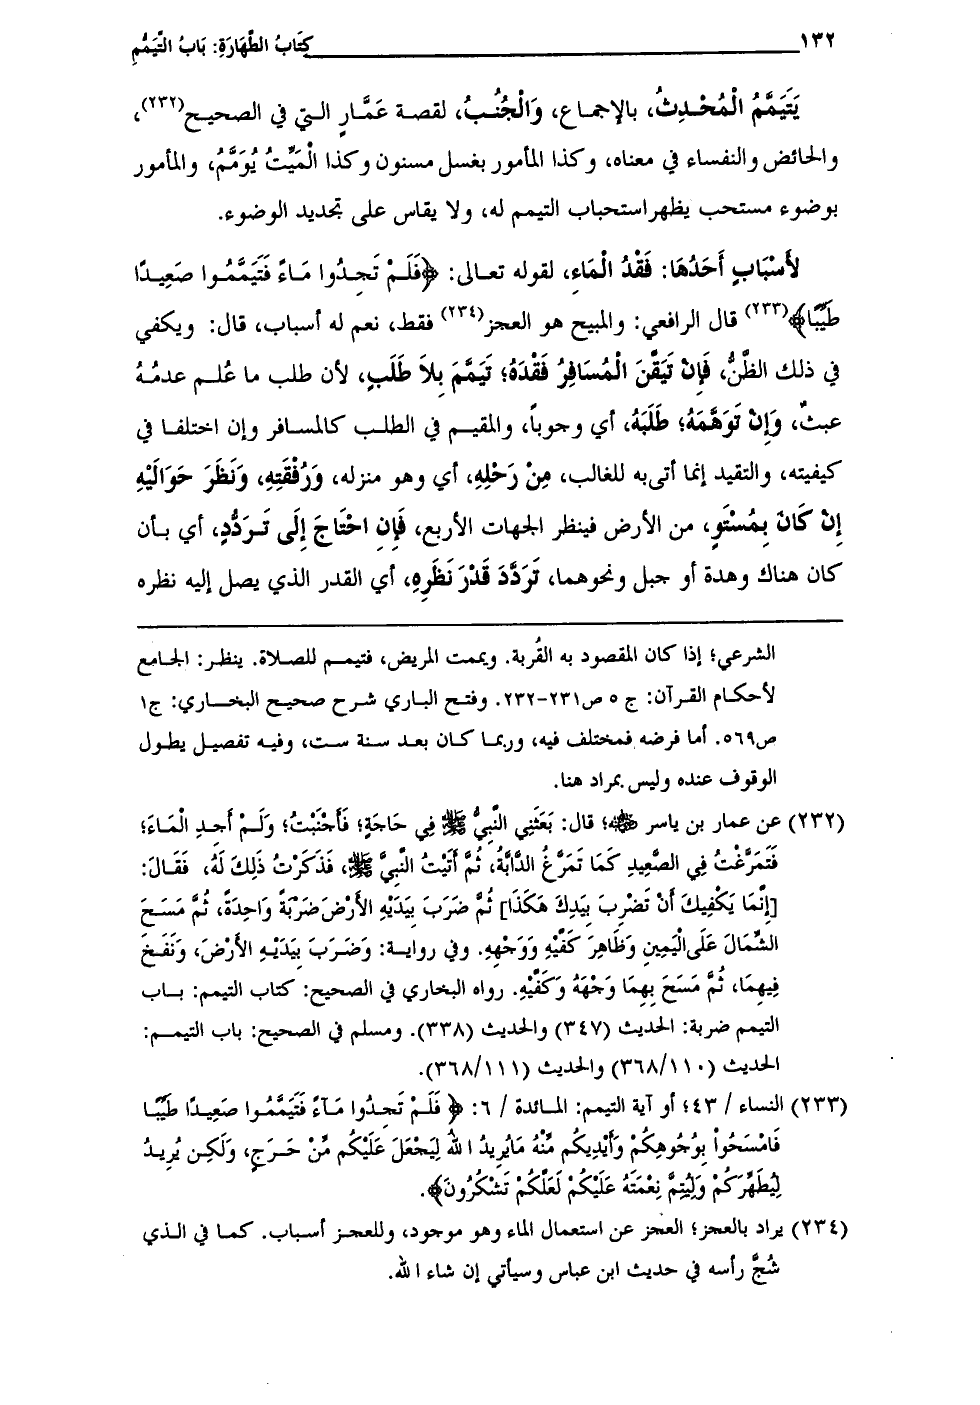 ١٣٢ كِتَابُ الطَّهَارَةِ: بَابُ التَّيَمُّمِ
يَتَيَمَّمُ الْمُحْدِثُ، بالإجماع، وَالْجُنُبُ، لقصة عَمَّارٍ التي في الصحيح(٢٣٢)،
والحائض والنفساء في معناه، وكذا المأمور بغسل مسنون وكذا الْمَيِّتُ يُوَمَّمُ، والمأمور
بوضوء مستحب يظهر استحباب التيمم له، ولا يقاس على تجديد الوضوء.
لأَسْبَابٍ أَحَدُهَا: فَقْدُ الْمَاءِ، لقوله تعالى: ﴿فَلَمْ تَجِدُوا مَاءً فَتَيَمَّمُوا صَعِيدًا
طَيِّبًا﴾(٢٣٣) قال الرافعي: والمبيح هو العجز(٢٣٤) فقط، نعم له أسباب، قال: ويكفي
في ذلك الظَّنُّ، فَإِنْ تَيَقَّنَ الْمُسَافِرُ فَقْدَهُ؛ تَيَمَّمَ بِلاَ طَلَبٍ، لأن طلب ما عُلم عدمُهُ
عبثٌ، وَإِنْ تَوَهَّمَهُ؛ طَلَبَهُ، أي وجوباً، والمقيم في الطلب كالمسافر وإن اختلفا في
كيفيته، والتقيد إنما أتى به للغالب، مِنْ رَحْلِهِ، أي وهو منزله، وَرُفْقَتِهِ، وَنَظَرَ حَوَالَيْهِ
إِنْ كَانَ بِمُسْتَوٍ، من الأرض فينظر الجهات الأربع، فَإِنِ احْتَاجَ إِلَى تَرَدُّدٍ، أي بأن
كان هناك وهدة أو جبل ونحوهما، تَرَدَّدَ قَدْرَ نَظَرِهِ، أي القدر الذي يصل إليه نظره
الشرعي؛ إذا كان المقصود به القُربة. ويممت المريض، فتيمم للصلاة. ينظر: الجامع
لأحكام القرآن: ج ٥ ص٢٣١-٢٣٢. وفتح الباري شرح صحيح البخاري: ج١
ص٥٦٩. أما فرضه فمختلف فيه، وربما كان بعد سنة ست، وفيه تفصيل يطول
الوقوف عنده وليس بمراد هنا.
(٢٣٢) عن عمار بن ياسر ﵁؛ قال: بَعَثَنِي النَّبِيُّ ﷺ فِي حَاجَةٍ؛ فَأَجْنَبْتُ؛ وَلَمْ أَجِدِ الْمَاءَ؛
فَتَمَرَّغْتُ فِي الصَّعِيدِ كَمَا تَمَرَّغُ الدَّابَّةُ، ثُمَّ أَتَيْتُ النَّبِيَّ ﷺ، فَذَكَرْتُ ذَلِكَ لَهُ، فَقَالَ:
[إِنَّمَا يَكْفِيكَ أَنْ تَضْرِبَ بِيَدِكَ هَكَذَا] ثُمَّ ضَرَبَ بِيَدَيْهِ الأَرْضَ ضَرْبَةً وَاحِدَةً، ثُمَّ مَسَحَ
الشِّمَالَ عَلَى الْيَمِينِ وَظَاهِرَ كَفَّيْهِ وَوَجْهِهِ. وفي رواية: وَضَرَبَ بِيَدَيْهِ الأَرْضَ، وَنَفَخَ
فِيهِمَا، ثُمَّ مَسَحَ بِهِمَا وَجْهَهُ وَكَفَّيْهِ. رواه البخاري في الصحيح: كتاب التيمم: باب
التيمم ضربة: الحديث (٣٤٧) والحديث (٣٣٨). ومسلم في الصحيح: باب التيمم:
الحديث (٣٦٨/١١٠) والحديث (٣٦٨/١١١).
(٢٣٣) النساء / ٤٣؛ أو آية التيمم: المائدة / ٦: ﴿ فَلَمْ تَجِدُوا مَآءً فَتَيَمَّمُوا صَعِيدًا طَيِّبًا
فَامْسَحُواْ بِوُجُوهِكُمْ وَأَيْدِيكُم مِّنْهُ مَايُرِيدُ اللهُ لِيَجْعَلَ عَلَيْكُم مِّنْ حَرَجٍ، وَلَكِن يُرِيدُ
لِيُطَهِّرَكُمْ وَلِيُتِمَّ نِعْمَتَهُ عَلَيْكُمْ لَعَلَّكُمْ تَشْكُرُونَ﴾.
(٢٣٤) يراد بالعجز؛ العجز عن استعمال الماء وهو موجود، وللعجز أسباب. كما في الذي
شُجَّ رأسه في حديث ابن عباس وسيأتي إن شاء الله.